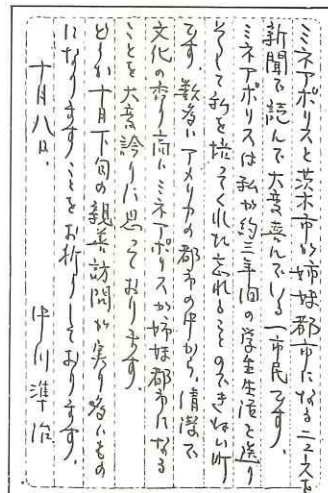 ミネアポリスと茨木市が姉妹都市になるニュースを
新聞で読んで大変喜んでいる一市民です。
ミネアポリスは私が約三年間の学生生活を送り
そして私を培ってくれた忘れることのできない町
です。数多いアメリカの都市の中から、清潔で
文化の香り高いミネアポリスが姉妹都市になる
ことを大変誇りに思っております。
どうか十月下旬の親善訪問が実り多いもの
になりますことをお祈りしております。
十月八日、 中川準治